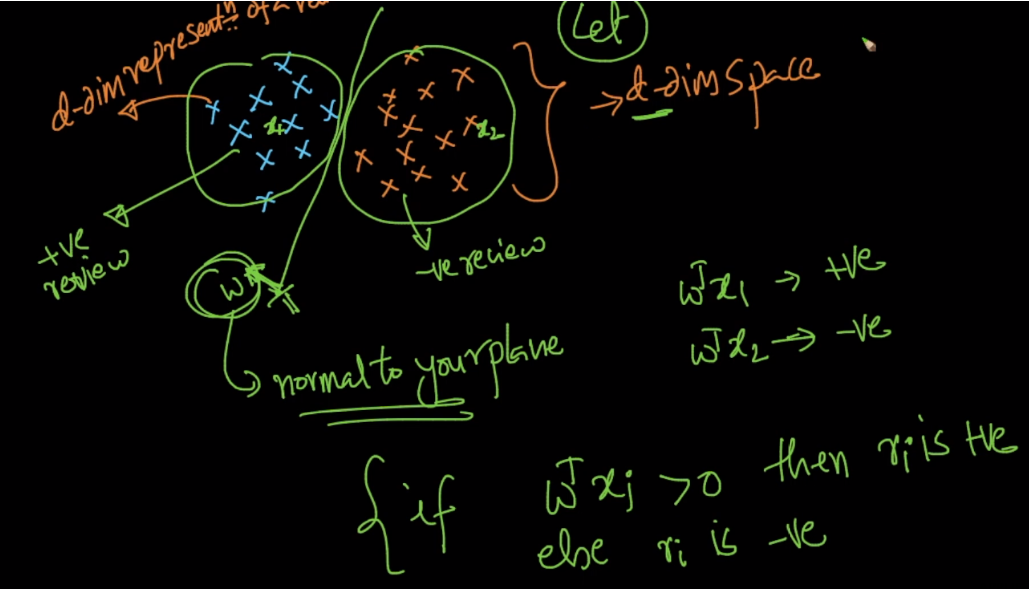 d-dim represent.ⁿ of a
Let
→ d-dim space
x₁
x₂
+ve
review
-ve review
w
normal to your plane
wᵀx₁ → +ve
wᵀx₂ → -ve
if wᵀxᵢ > 0 then rᵢ is +ve
else rᵢ is -ve